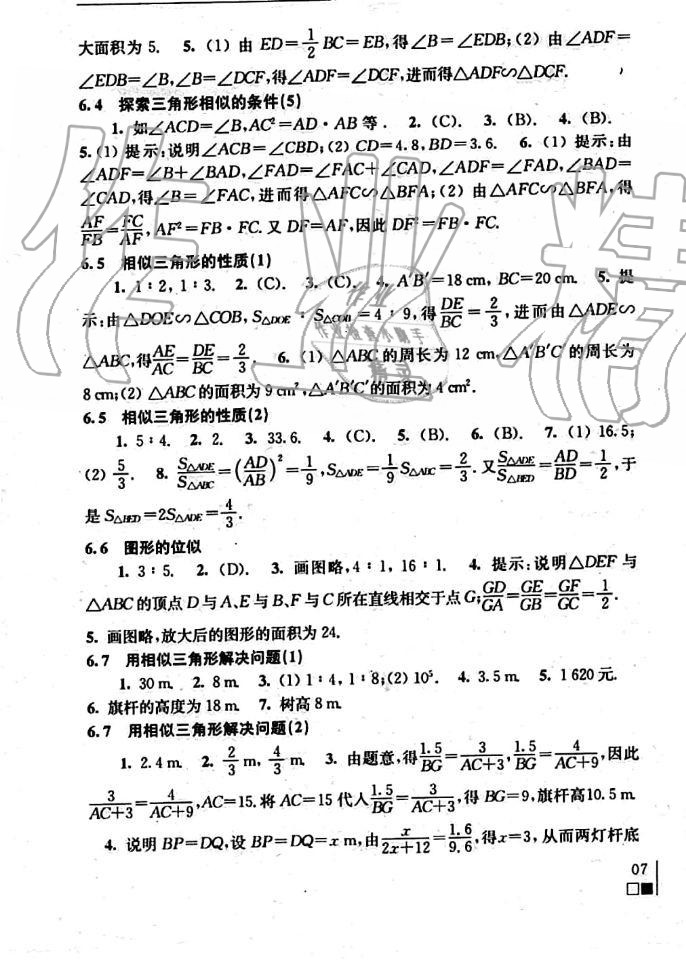 大面积为 5. 5. (1) 由 ED=1/2 BC=EB,得∠B=∠EDB;(2) 由∠ADF=
∠EDB=∠B,∠B=∠DCF,得∠ADF=∠DCF,进而得△ADF∽△DCF.
6.4 探索三角形相似的条件(5)
1. 如∠ACD=∠B,AC²=AD·AB等. 2. (C). 3. (B). 4. (B).
5.(1) 提示:说明∠ACB=∠CBD;(2) CD=4.8,BD=3.6. 6. (1) 提示:由
∠ADF=∠B+∠BAD,∠FAD=∠FAC+∠CAD,∠ADF=∠FAD,∠BAD=
∠CAD,得∠B=∠FAC,进而得△AFC∽△BFA;(2) 由△AFC∽△BFA,得
AF/FB=FC/AF,AF²=FB·FC.又DF=AF,因此DF²=FB·FC.
6.5 相似三角形的性质(1)
1. 1∶2,1∶3. 2. (C). 3. (C). 4. A′B′=18 cm,BC=20 cm. 5. 提
示:由△DOE∽△COB,S△DOE∶S△COB=4∶9,得DE/BC=2/3,进而由△ADE∽
△ABC,得AE/AC=DE/BC=2/3. 6. (1) △ABC的周长为 12 cm,△A′B′C′的周长为
8 cm;(2) △ABC的面积为9 cm²,△A′B′C′的面积为4 cm².
6.5 相似三角形的性质(2)
1. 5∶4. 2. 2. 3. 33.6. 4. (C). 5. (B). 6. (B). 7. (1) 16.5;
(2) 5/3. 8. S△ADE/S△ABC=(AD/AB)²=1/9,S△ADE=1/9S△ABC=2/3.又S△ADE/S△BED=AD/BD=1/2,于
是S△BED=2S△ADE=4/3.
6.6 图形的位似
1. 3∶5. 2. (D). 3. 画图略,4∶1,16∶1. 4. 提示:说明△DEF与
△ABC的顶点D与A、E与B、F与C所在直线相交于点G;GD/GA=GE/GB=GF/GC=1/2.
5. 画图略,放大后的图形的面积为24.
6.7 用相似三角形解决问题(1)
1. 30 m. 2. 8 m. 3. (1) 1∶4,1∶8;(2) 10⁵. 4. 3.5 m. 5. 1 620元.
6. 旗杆的高度为18 m. 7. 树高8 m.
6.7 用相似三角形解决问题(2)
1. 2.4 m. 2. 2/3 m,4/3 m. 3. 由题意,得1.5/BG=3/AC+3,1.5/BG=4/AC+9,因此
3/AC+3=4/AC+9,AC=15.将AC=15代入1.5/BG=3/AC+3,得BG=9,旗杆高10.5 m.
4. 说明BP=DQ,设BP=DQ=x m,由x/2x+12=1.6/9.6,得x=3,从而两灯杆底
07
作业精
作业
作业检查小助手
精灵